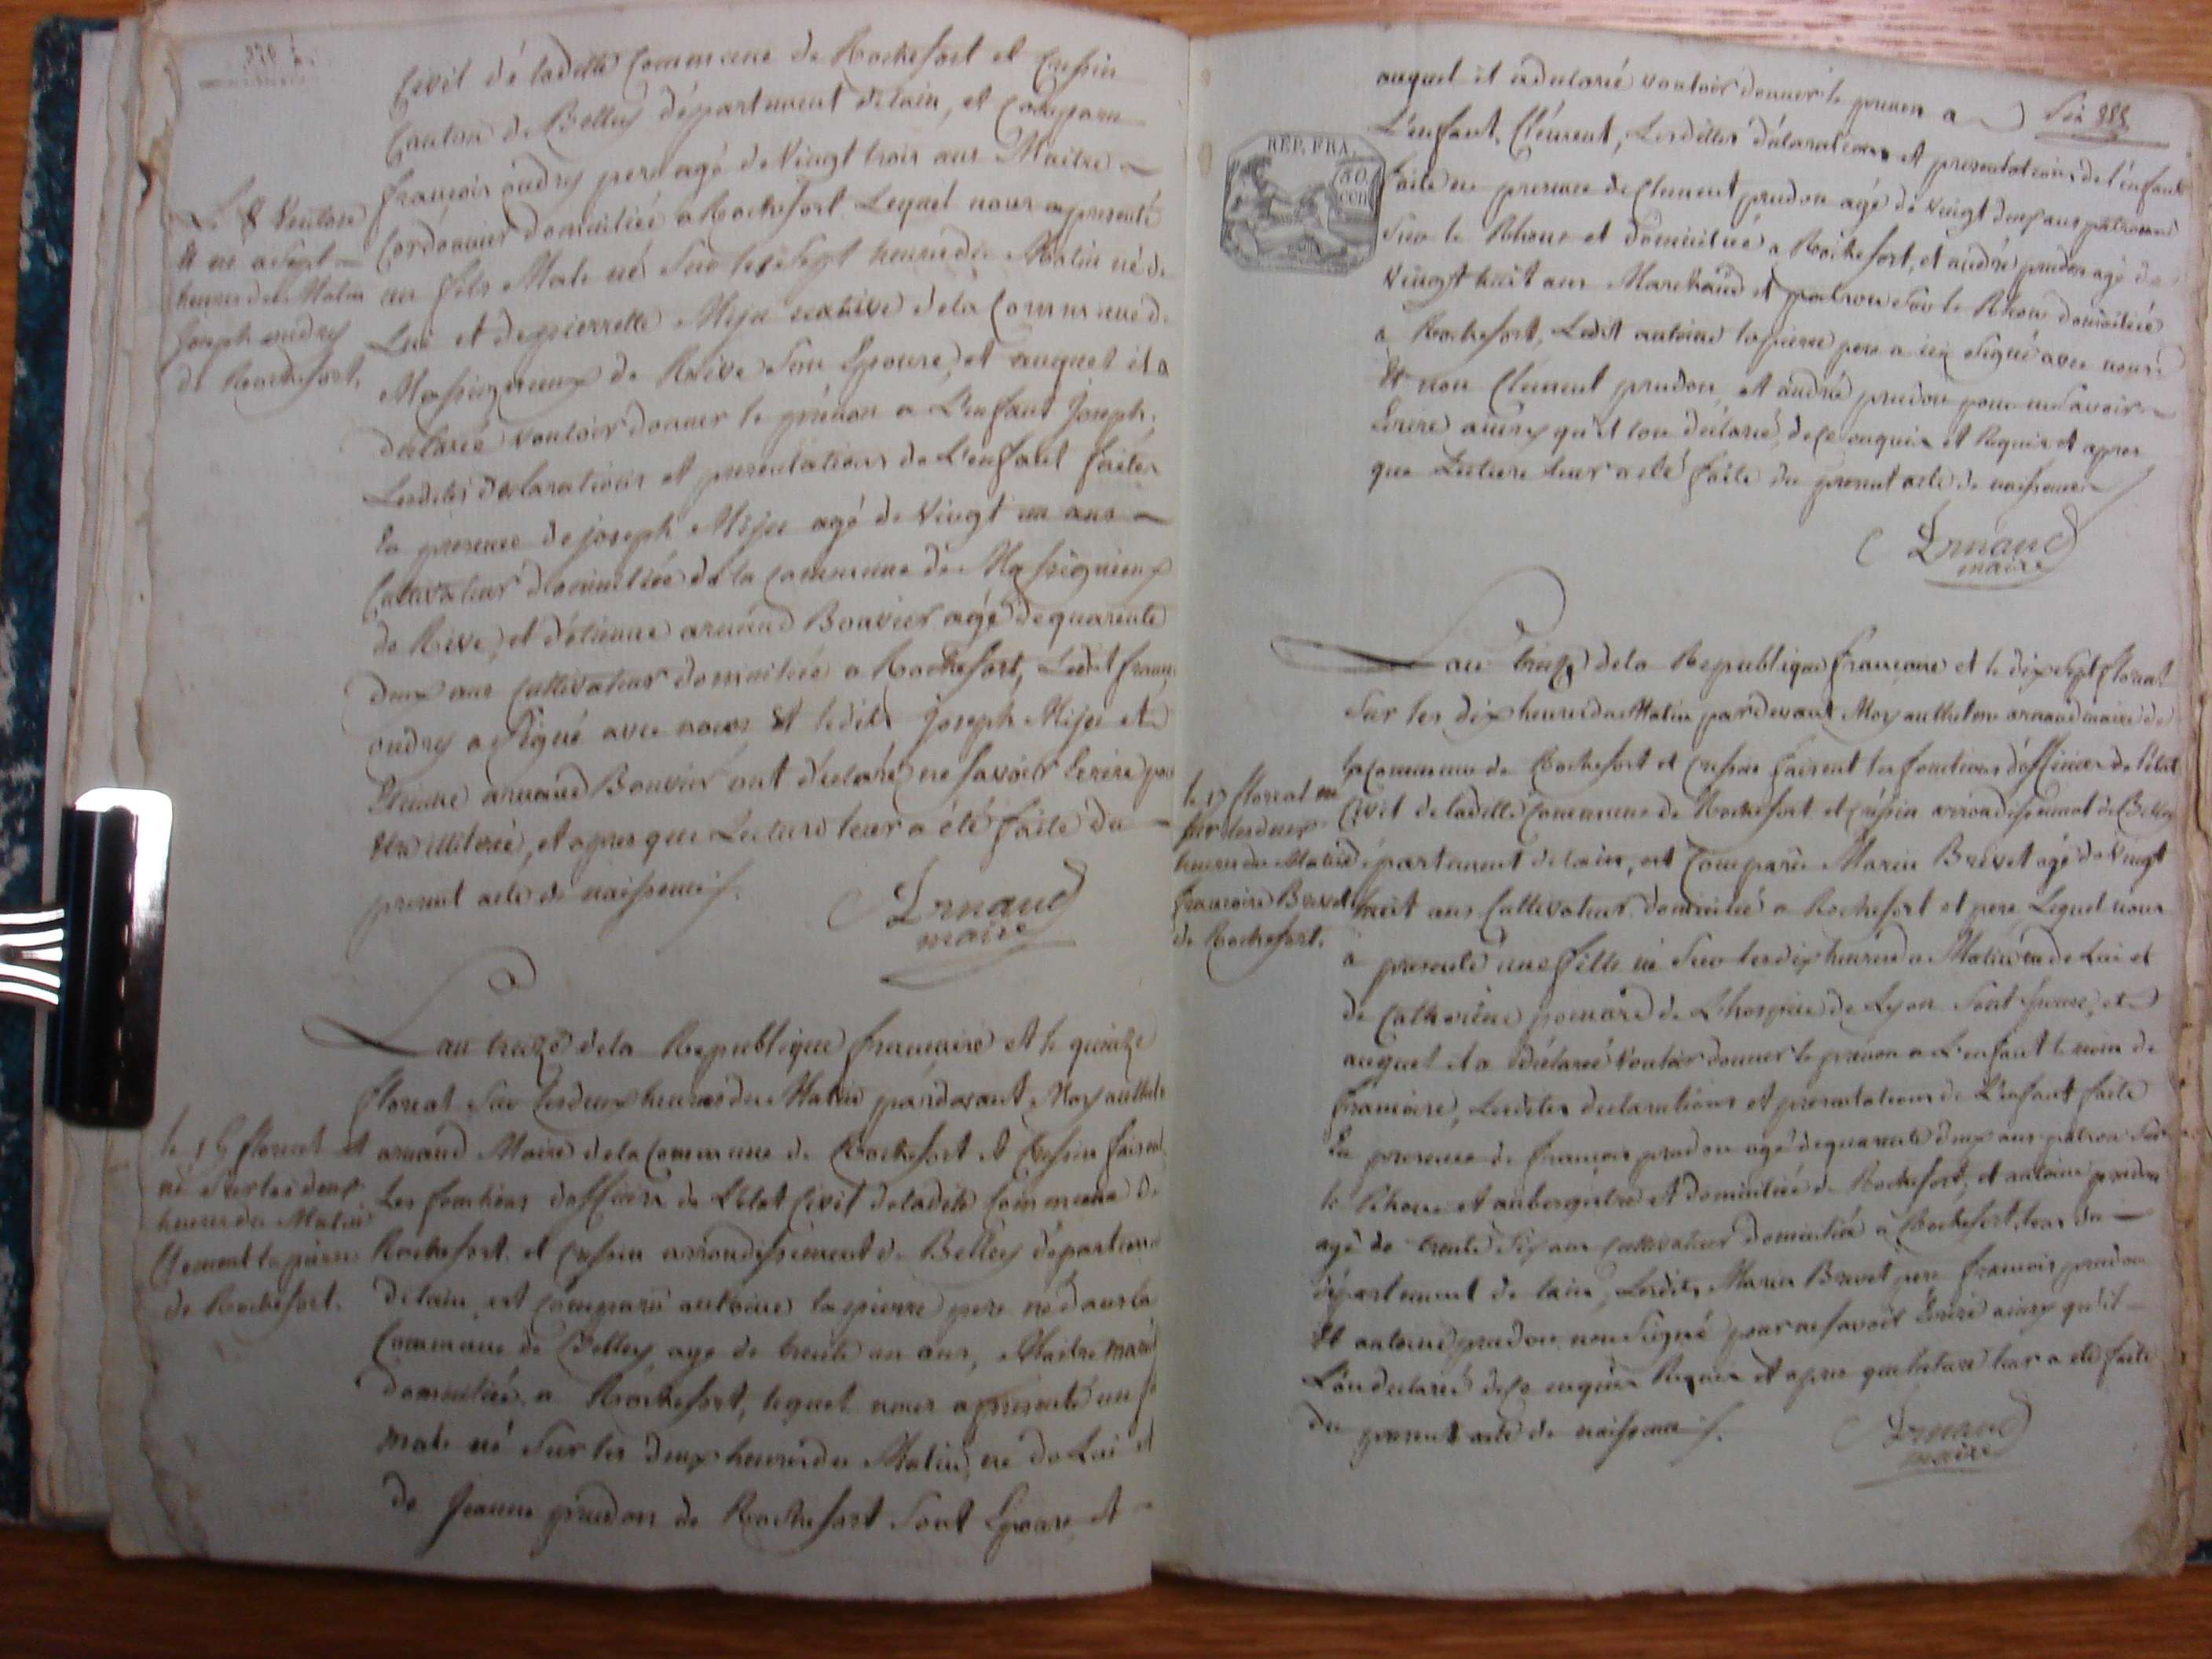 Civil de ladette Commune de Rochefort et Cressin
Canton de Belley département delain, et Comparu
françois oudry pere agé de Vingt trois ans Maitre
Cordonnier domiciliée a Rochefort Lequel nous apresenté
un fils Male né Sur les Sept heures du Matin né de
Lui et depierrette Mijei native dela Commune de
Massigneux de Rive Son Epouse, et auquel il a
déclaré vouloir donner le prénon a L'enfant Joseph.
Lesdites declarations et presentations de L'enfant faites
En presence de joseph Mijei agé de Vingt un ans
Cultivateur domiciliée de la commune de Massigneux
de Rive, et d'étienne arnaud Bouvier agé dequarente
deux ans Cultivateur domiciliée a Rochefort, Ledit franç
oudry a Signé avec nous Et lesdits Joseph Mijei et
Etienne arnaud Bouvier ont déclaré ne Savoir Ecrire pour
Etre illiteré, et apres que Lecture leur a été faite du
present acte de naissence
Arnaud
maire
Le 8 Ventose
Et né a Sept
heures du Matin
Joseph oudry
de Rochefort.
Lan treize dela Republique francaise et le quinze
floreal Sur les deux heures du Matin pardevant Moy anthele
arnaud Maire dela Commune de Rochefort et Cressin faisent
Les fonctions dofficier de L'état Civil deladite Commune de
Rochefort et Cressin arrondissement de Belley départem
delain est comparu antoine lapierre pere né dans la
Commune de Belley, age de trente un ans, Maitre
domiciliée a Rochefort, lequel nous apresenté un f
male né Sur les deux heures du Matin, né de Lui et
de Jeanne prudon de Rochefort Sont Epouse, et
le 15 floreal et
né Sur les deux
heures du Matin
Clement lapierre
de Rochefort.
auquel il a declarée vouloir donner le prenon a
L'enfant, Clément, Lesdittes déclarations et presentations de l'enfant
faite en presence de Clement prudon agé de Vingt deux ans patron
Sur le Rhone et domiciliée a Rochefort, et andré prudon agé de
Vingt huit ans Marchand et patron Sur le Rhone domiciliée
a Rochefort, Ledit antoine lapierre pere a Signé avec nous
Et non Clement prudon, et andré prudon pour ne Savoir
Ecrire ainsy qu'il lon déclaré, de ce enquis et Requis et apres
que Lecture leur a eté faite du present acte de naissence
Arnaud
maire
RÉP. FRA.
50
cen
Lan treize dela Republique francaise et le dix Sept floreal
Sur les dix heures du Matin pardevant Moy anthelme arnaud maire de
la Commune de Rochefort et Cressin faisent les fonctions dofficier de l'état
Civil de ladette Commune de Rochefort et Cressin arrondissement de Belley
département delain, est Comparu Marin Brevet agé de Vingt
huit ans Cultivateur domicilié a Rochefort et pere Lequel nous
a presenté une fille né Sur les dix heures du Matin né de Lui et
de Catherine de L'hospice de Lyon Sont Epouse, et
auquel il a déclaré vouloir donner le prénon a L'enfant le nom de
francoise, Lesdites declarations et presentations de L'enfant faite
En presence de françois prudon agé dequarente deux ans patron Sur
le Rhone et aubergiste et domiciliée de Rochefort, et antoine prudon
agé de trente Six ans Cultivateur domiciliée a Rochefort, tous du
département de lain, Lesdits Marin Brevet pere françois prudon
Et antoine prudon non Signé pour ne Savoir Ecrire ainsy qu'il
L'on declarés de ce enquis Requis et apres que lecture leur a été faite
du present acte de naissence
Arnaud
maire
le 17 floreal né
Sur les deux
heures du Matin
francoise Brevet
de Rochefort.